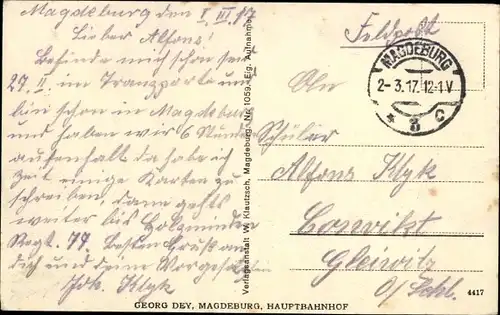 Magdeburg den 1. III. 17
Lieber Alfons!
Befinde mich schon seit
27. II. im Transporte und
bin schon in Magdeburg
und haben wir 6 Stunden
aufenhalt da habe ich
Zeit einige Karten zu
schreiben, dann gehts
weiter bis Holzminden
Regt. 77. Besten Gruß an
dich und deine Vorgesetzten
Joh. Klyk
Verlagsanstalt W. Klautzsch, Magdeburg. Nr. 1059. Eig. Aufnahme.
Feldpost
MAGDEBURG
2-3.17.12-1V
* 8 c
An
Schüler
Alfons Klyk
Gleiwitz
O/Schl.
4417
GEORG DEY, MAGDEBURG, HAUPTBAHNHOF